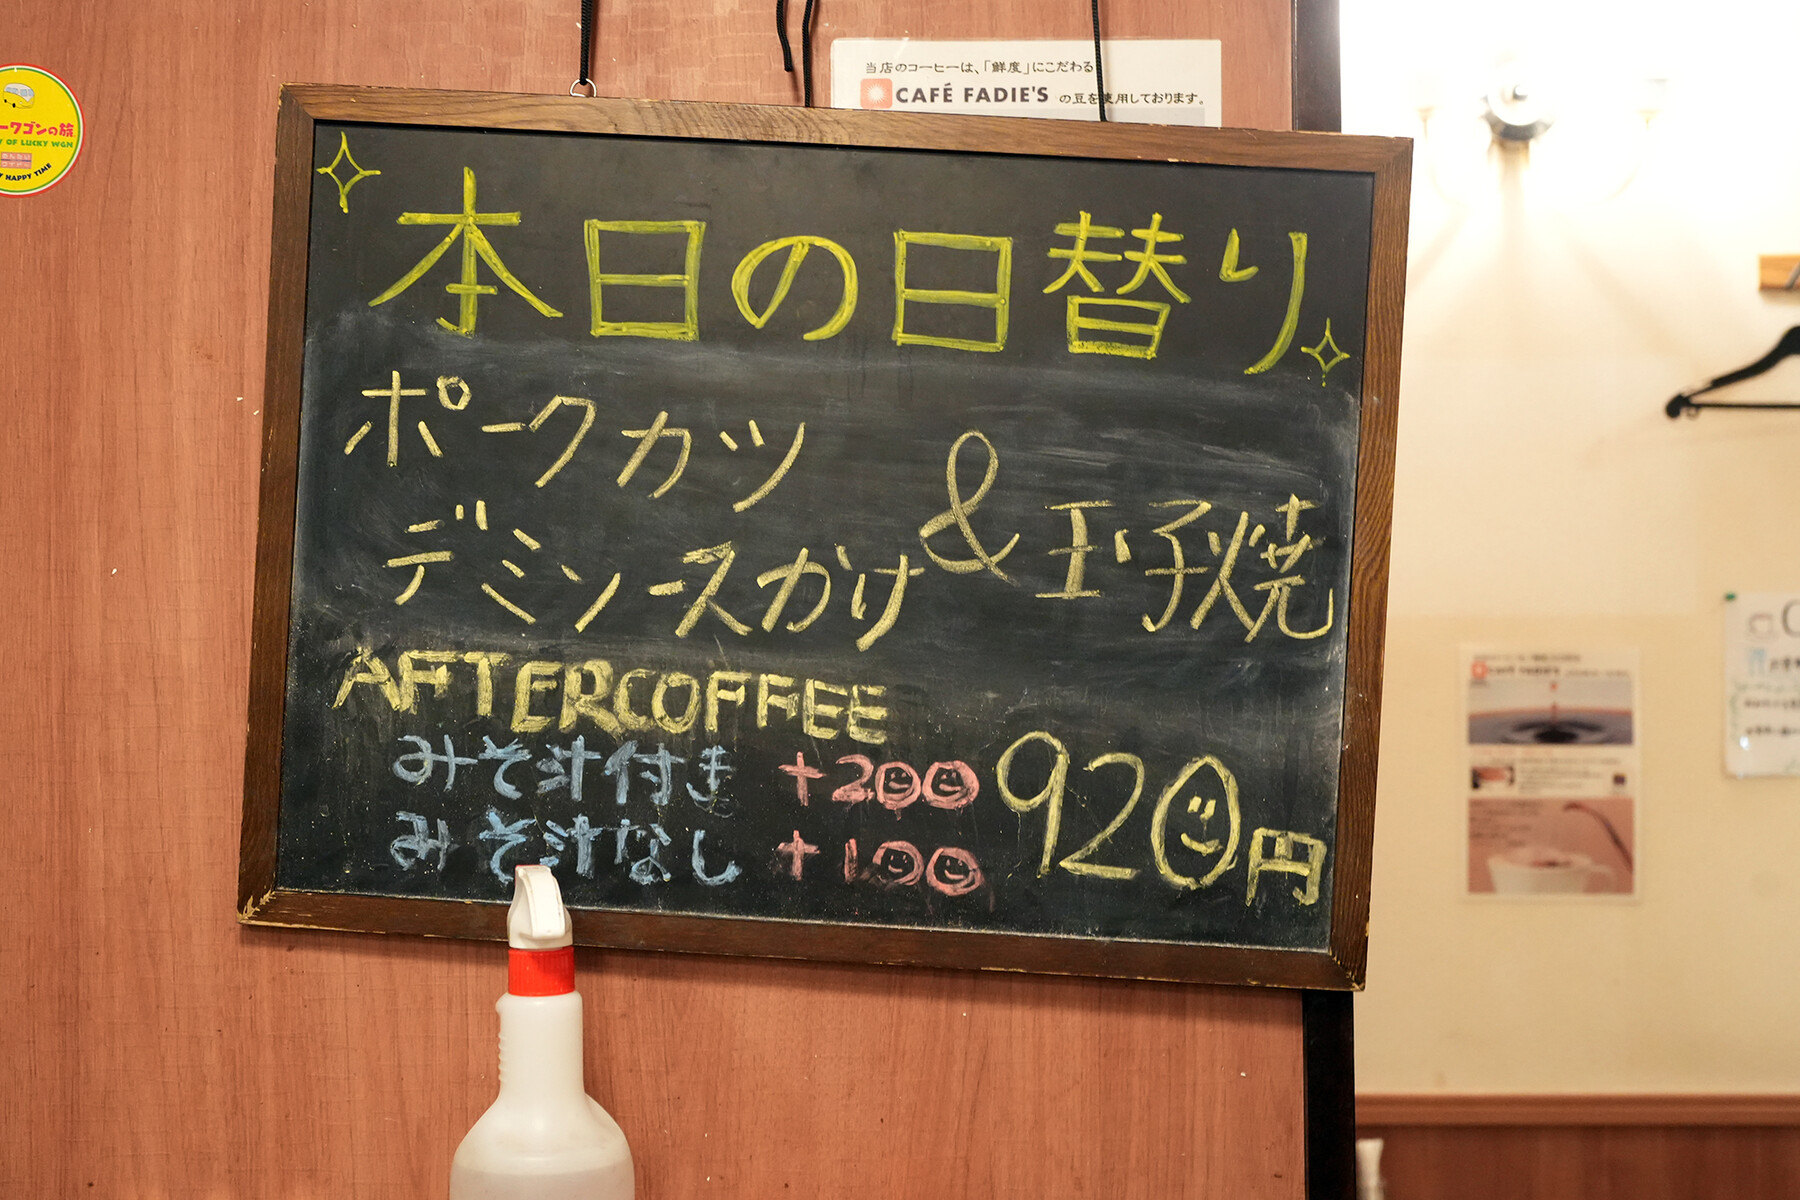 当店のコーヒーは、「鮮度」にこだわる
CAFÉ FADIE'S の豆を使用しております。
ーワゴンの旅
Y OF LUCKY WGN
HAPPY TIME
本日の日替り
ポークカツ
デミソースかけ & 玉子焼
AFTERCOFFEE
みそ汁付き +200
みそ汁なし +100
920円
CAFÉ FADIE'S